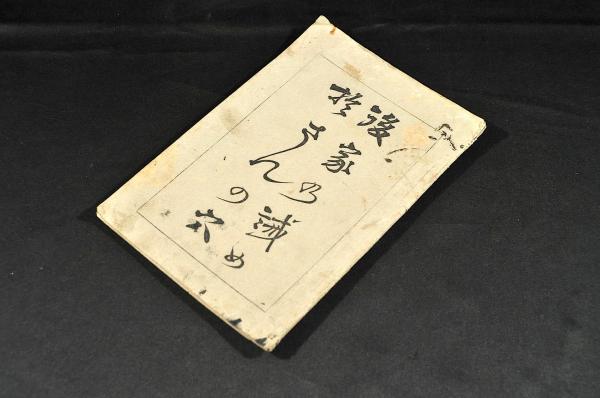 後家乃誡め
於さんの穴